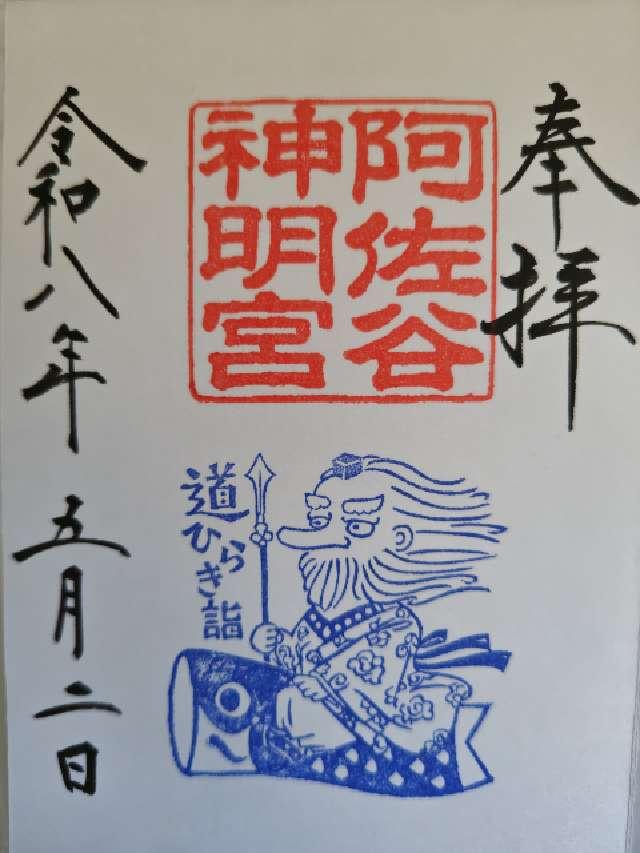 奉拝
阿佐谷
神明宮
道ひらき詣
令和八年五月二日